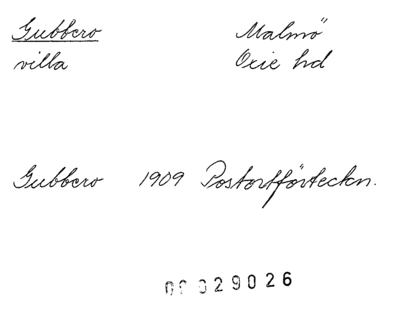 Gubbero Malmö
villa Oxie hd
Gubbero 1909 Postortförteckn.
029026